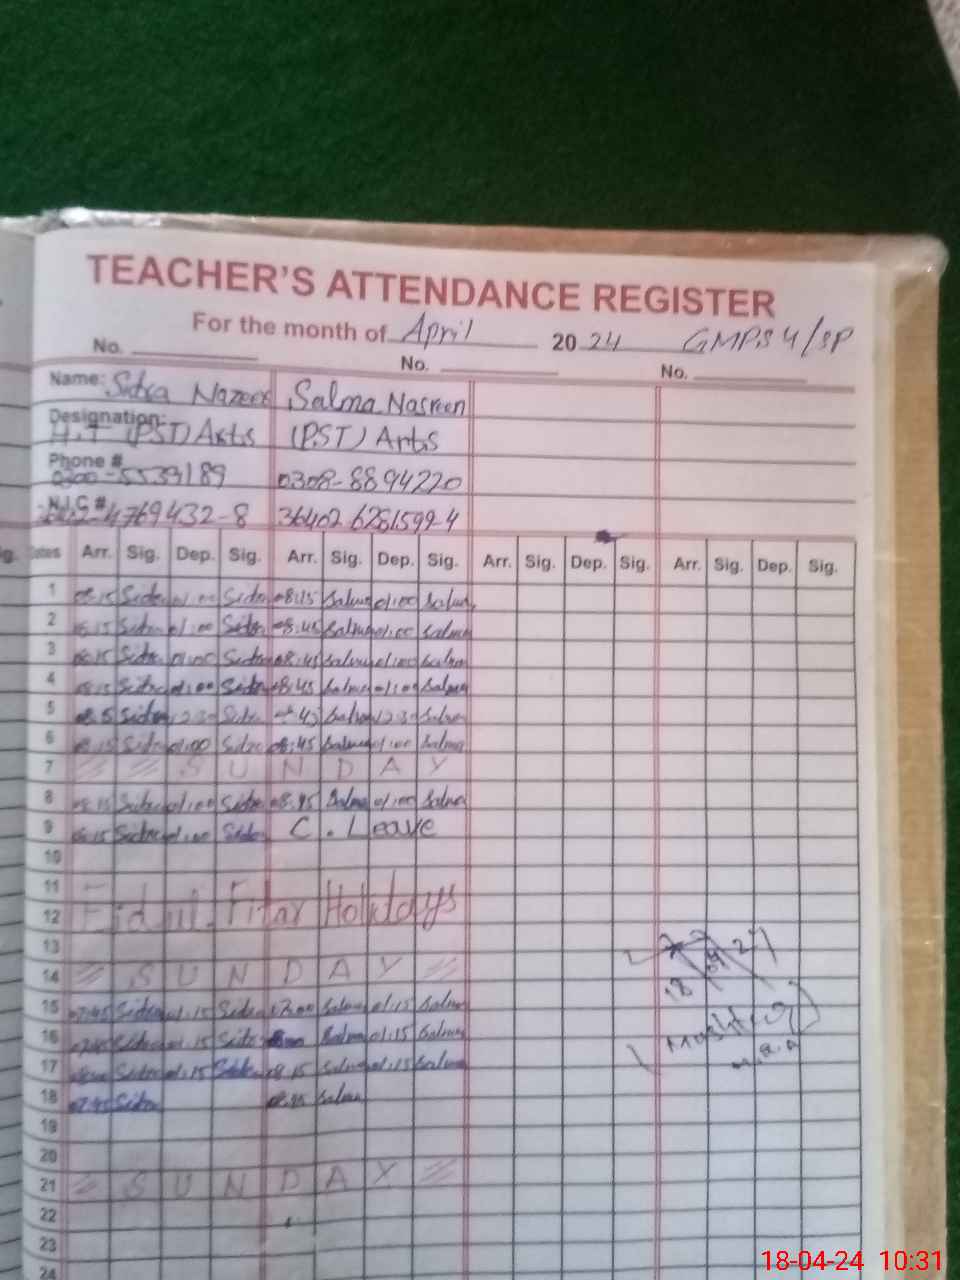 TEACHER'S ATTENDANCE REGISTER
For the month of April 2024 GMPS 4/SP
No. No. No.
Name: Sidra Nazeer Salma Nasreen
Designation: H.T (PST) Arts (PST) Arts
Phone # 0300-5539189 0308-8894220
N.I.C # 4769432-8 36402 6281599-4
Sig. Dates Arr. Sig. Dep. Sig. Arr. Sig. Dep. Sig. Arr. Sig. Dep. Sig. Arr. Sig. Dep. Sig.
1 08:15 Sidra 01:00 Sidra 08:15 Salma 01:00 Salma
2 08:15 Sidra 01:00 Sidra 08:45 Salma 01:00 Salma
3 08:15 Sidra 01:00 Sidra 08:45 Salma 01:00 Salma
4 08:15 Sidra 01:00 Sidra 08:45 Salma 01:00 Salma
5 Sidra 12:30 Sidra Salma 12:30 Salma
6 08:15 Sidra 01:00 Sidra 08:45 Salma 01:00 Salma
7 SUNDAY
8 08:15 Sidra 01:00 Sidra 08:45 Salma 01:00 Salma
9 08:15 Sidra 01:00 Sidra C. Leave
10
11
12 Eid ul. Fitar Holidays
13
14 SUNDAY
15 07:45 Sidra 01:15 Sidra Salma 01:15 Salma
16 07:45 Sidra 01:15 Sidra Salma 01:15 Salma
17 Sidra 01:15 Sidra 08:15 Salma 01:15 Salma
18 07:45 Sidra Salma
19
20
21 SUNDAY
22
23
24
18 24
18-04-24 10:31